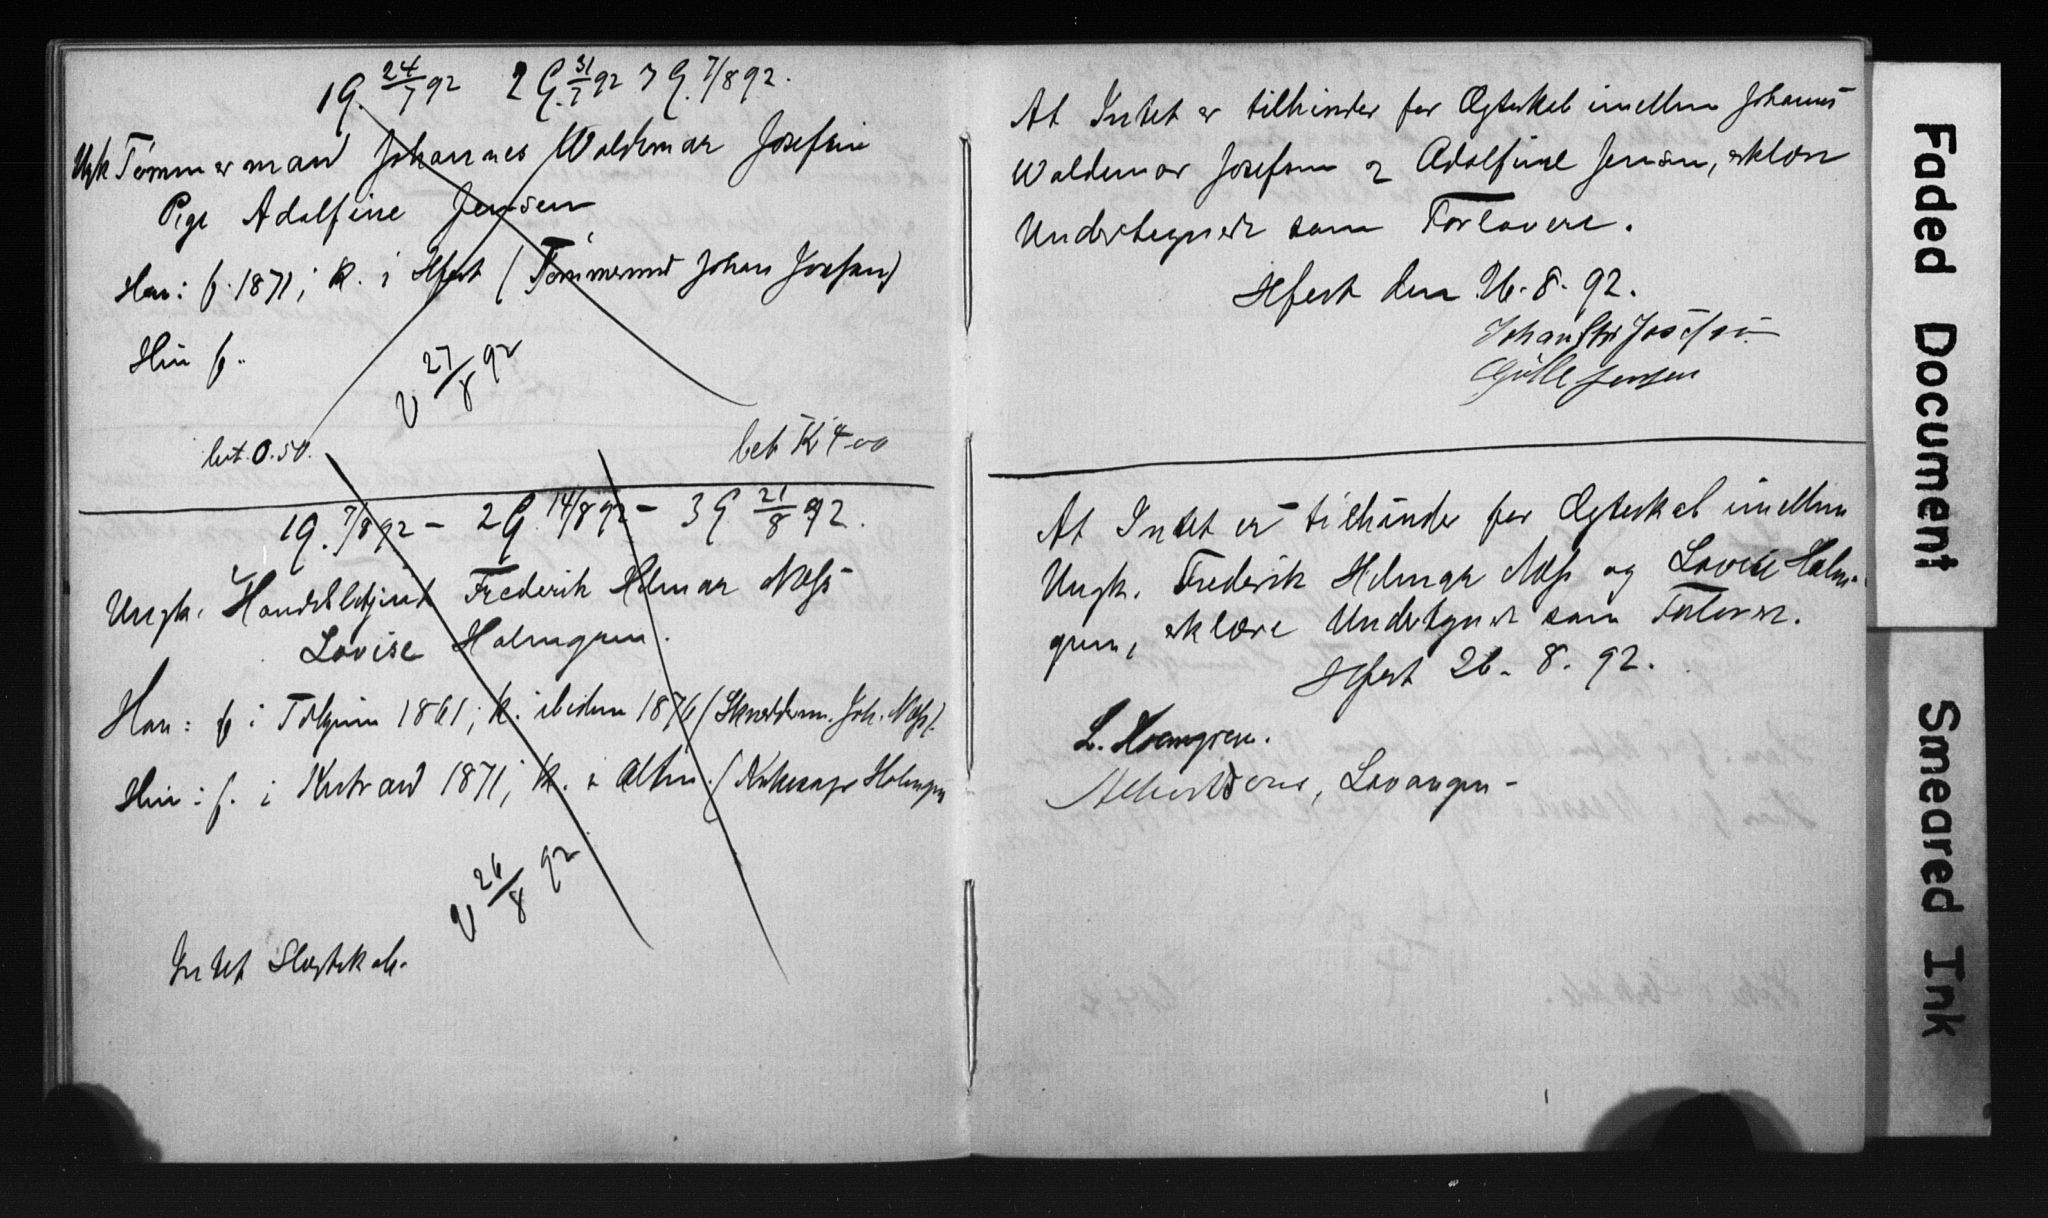 1 G. 24/7 92 2 G. 31/7 92 3 G. 7/8 92.
Ungk Tømmermand Johannes Waldemar Josefsen
Pige Adolfine Jensen
Han: f. 1871; k. i Hfest (Tømmermd Johan Josefsen)
Hun f.
V 27/8 92
bet. 0.50.
bet K 4 00
1 G. 7/8 92 - 2 G. 14/8 92 - 3 G 21/8 92.
Ungk. Handelsbetjent Frederik Hilmar Næss
Lovise Holmgren.
Han: f. i 1861; k. ibidem 1876 (Skrædderm. Joh. Næss).
Hun: f. i 1871; k. i Alten. ( Holmgren
V 26/8 92
Intet Slægtskab.
At Intet er tilhinder for Ægteskab imellem Johannes
Waldemar Josefsen og Adolfine Jensen, erklære
Undertegnede som Forlovere.
Hfest den 26.8.92.
Johan Josefsen
Jensen
At Intet er tilhinder for Ægteskab imellem
Ungk. Frederik Hilmar Næss og Lovise Holm-
gren, erklære Undertegnede som Forlovere.
Hfest 26. 8. 92.
L. Holmgren.
Albertsens, Lavangen -
Faded Document
Smeared Ink